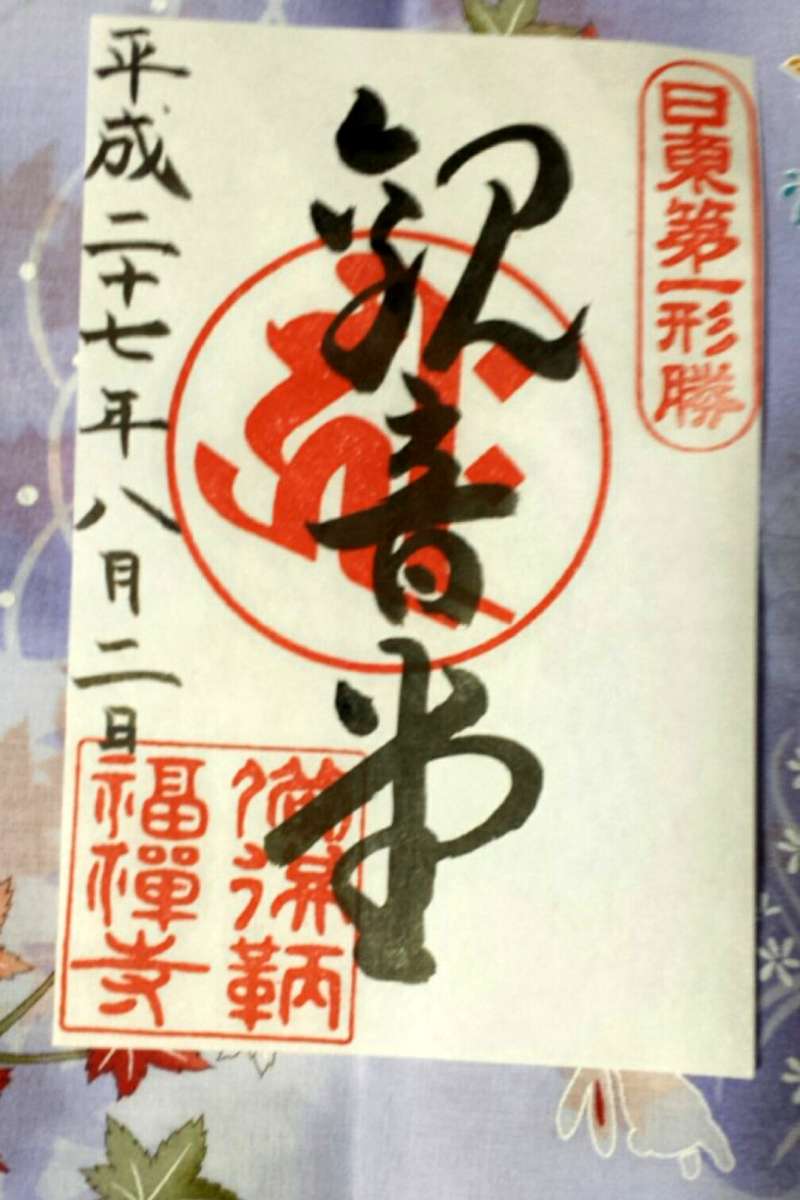 日東第一形勝
観音堂
平成二十七年八月二日
備後鞆
福禅寺